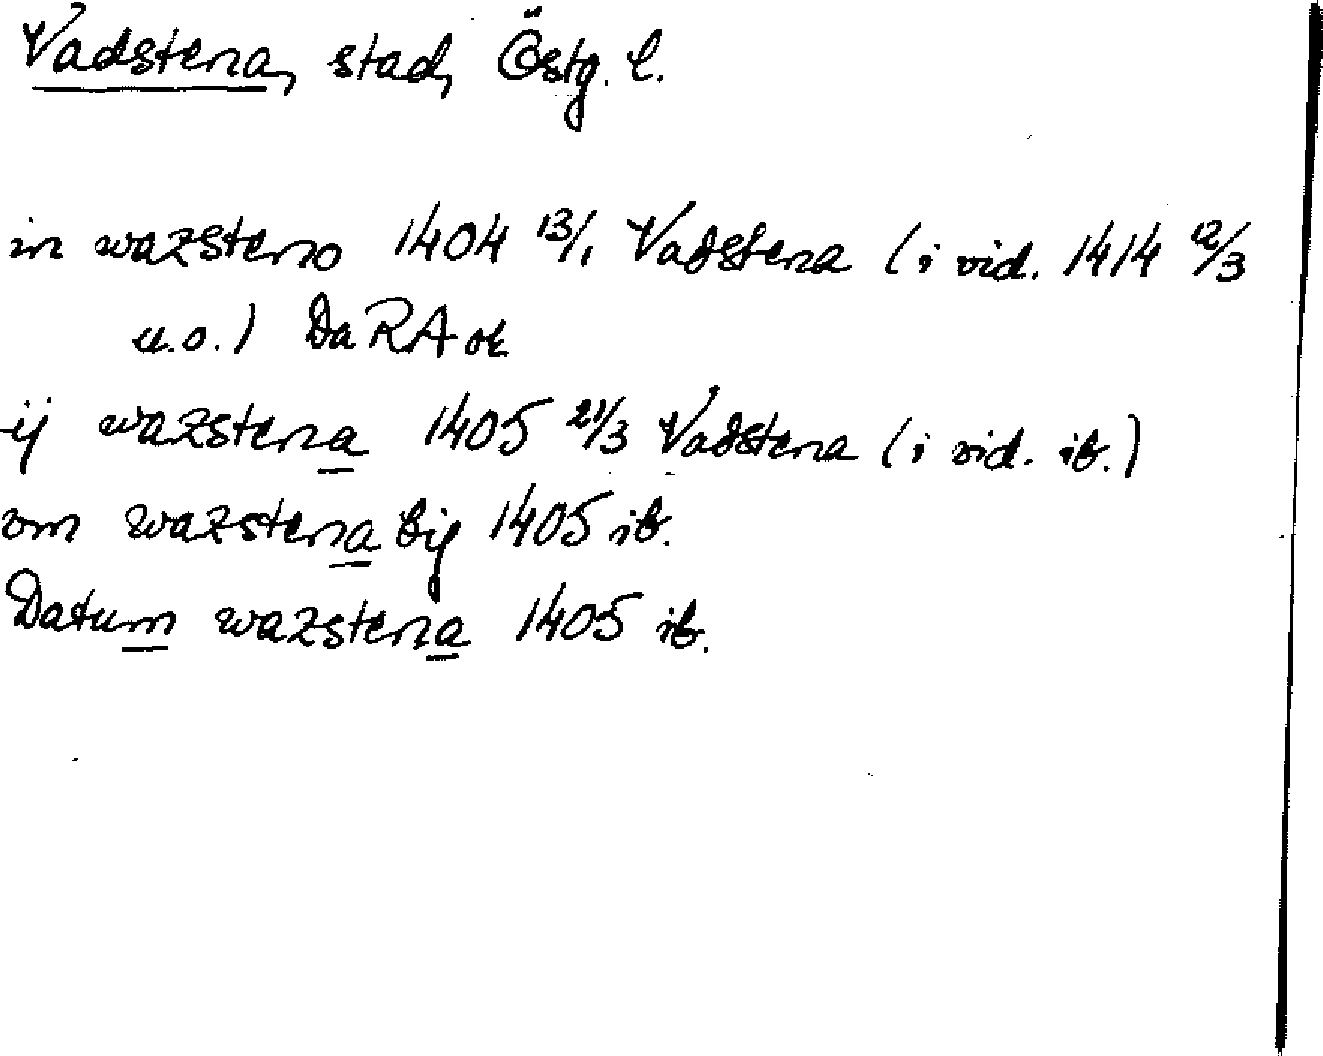 Vadstena, stad, Östg. l.
in wazsteno 1404 13/1 Vadstena (i vid. 1414 12/3
u.o.) DaRA ok
ij wazstena 1405 21/3 Vadstena (i vid. ib.)
om wazstena bij 1405 ib.
Datum wazstena 1405 ib.